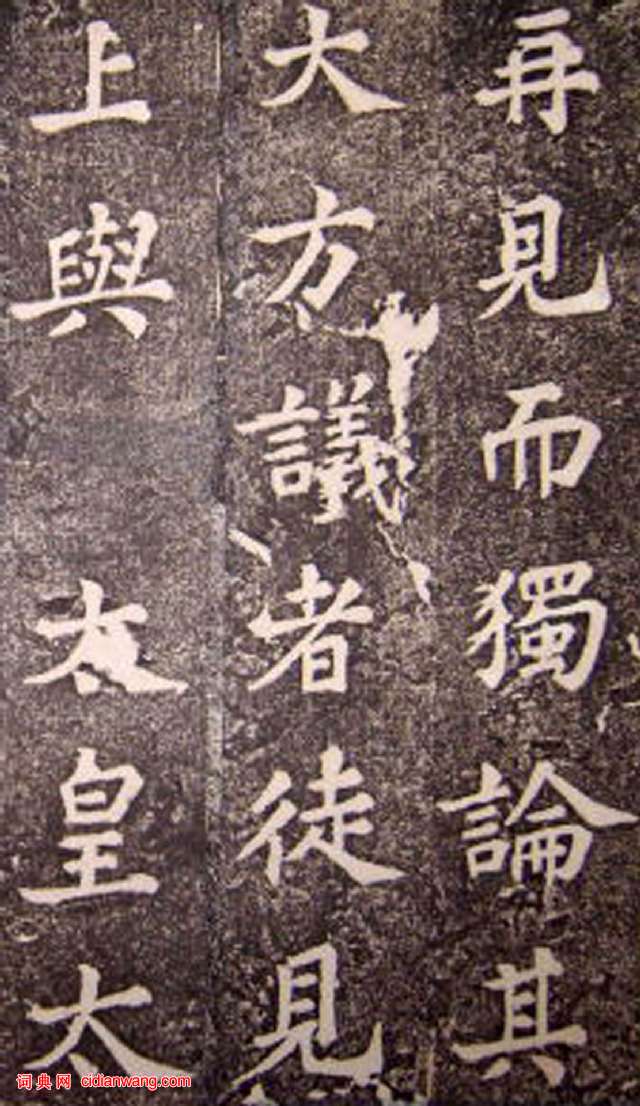 再見而獨論其
大方議者徒見
上與 太皇太
词典网 cidianwang.com